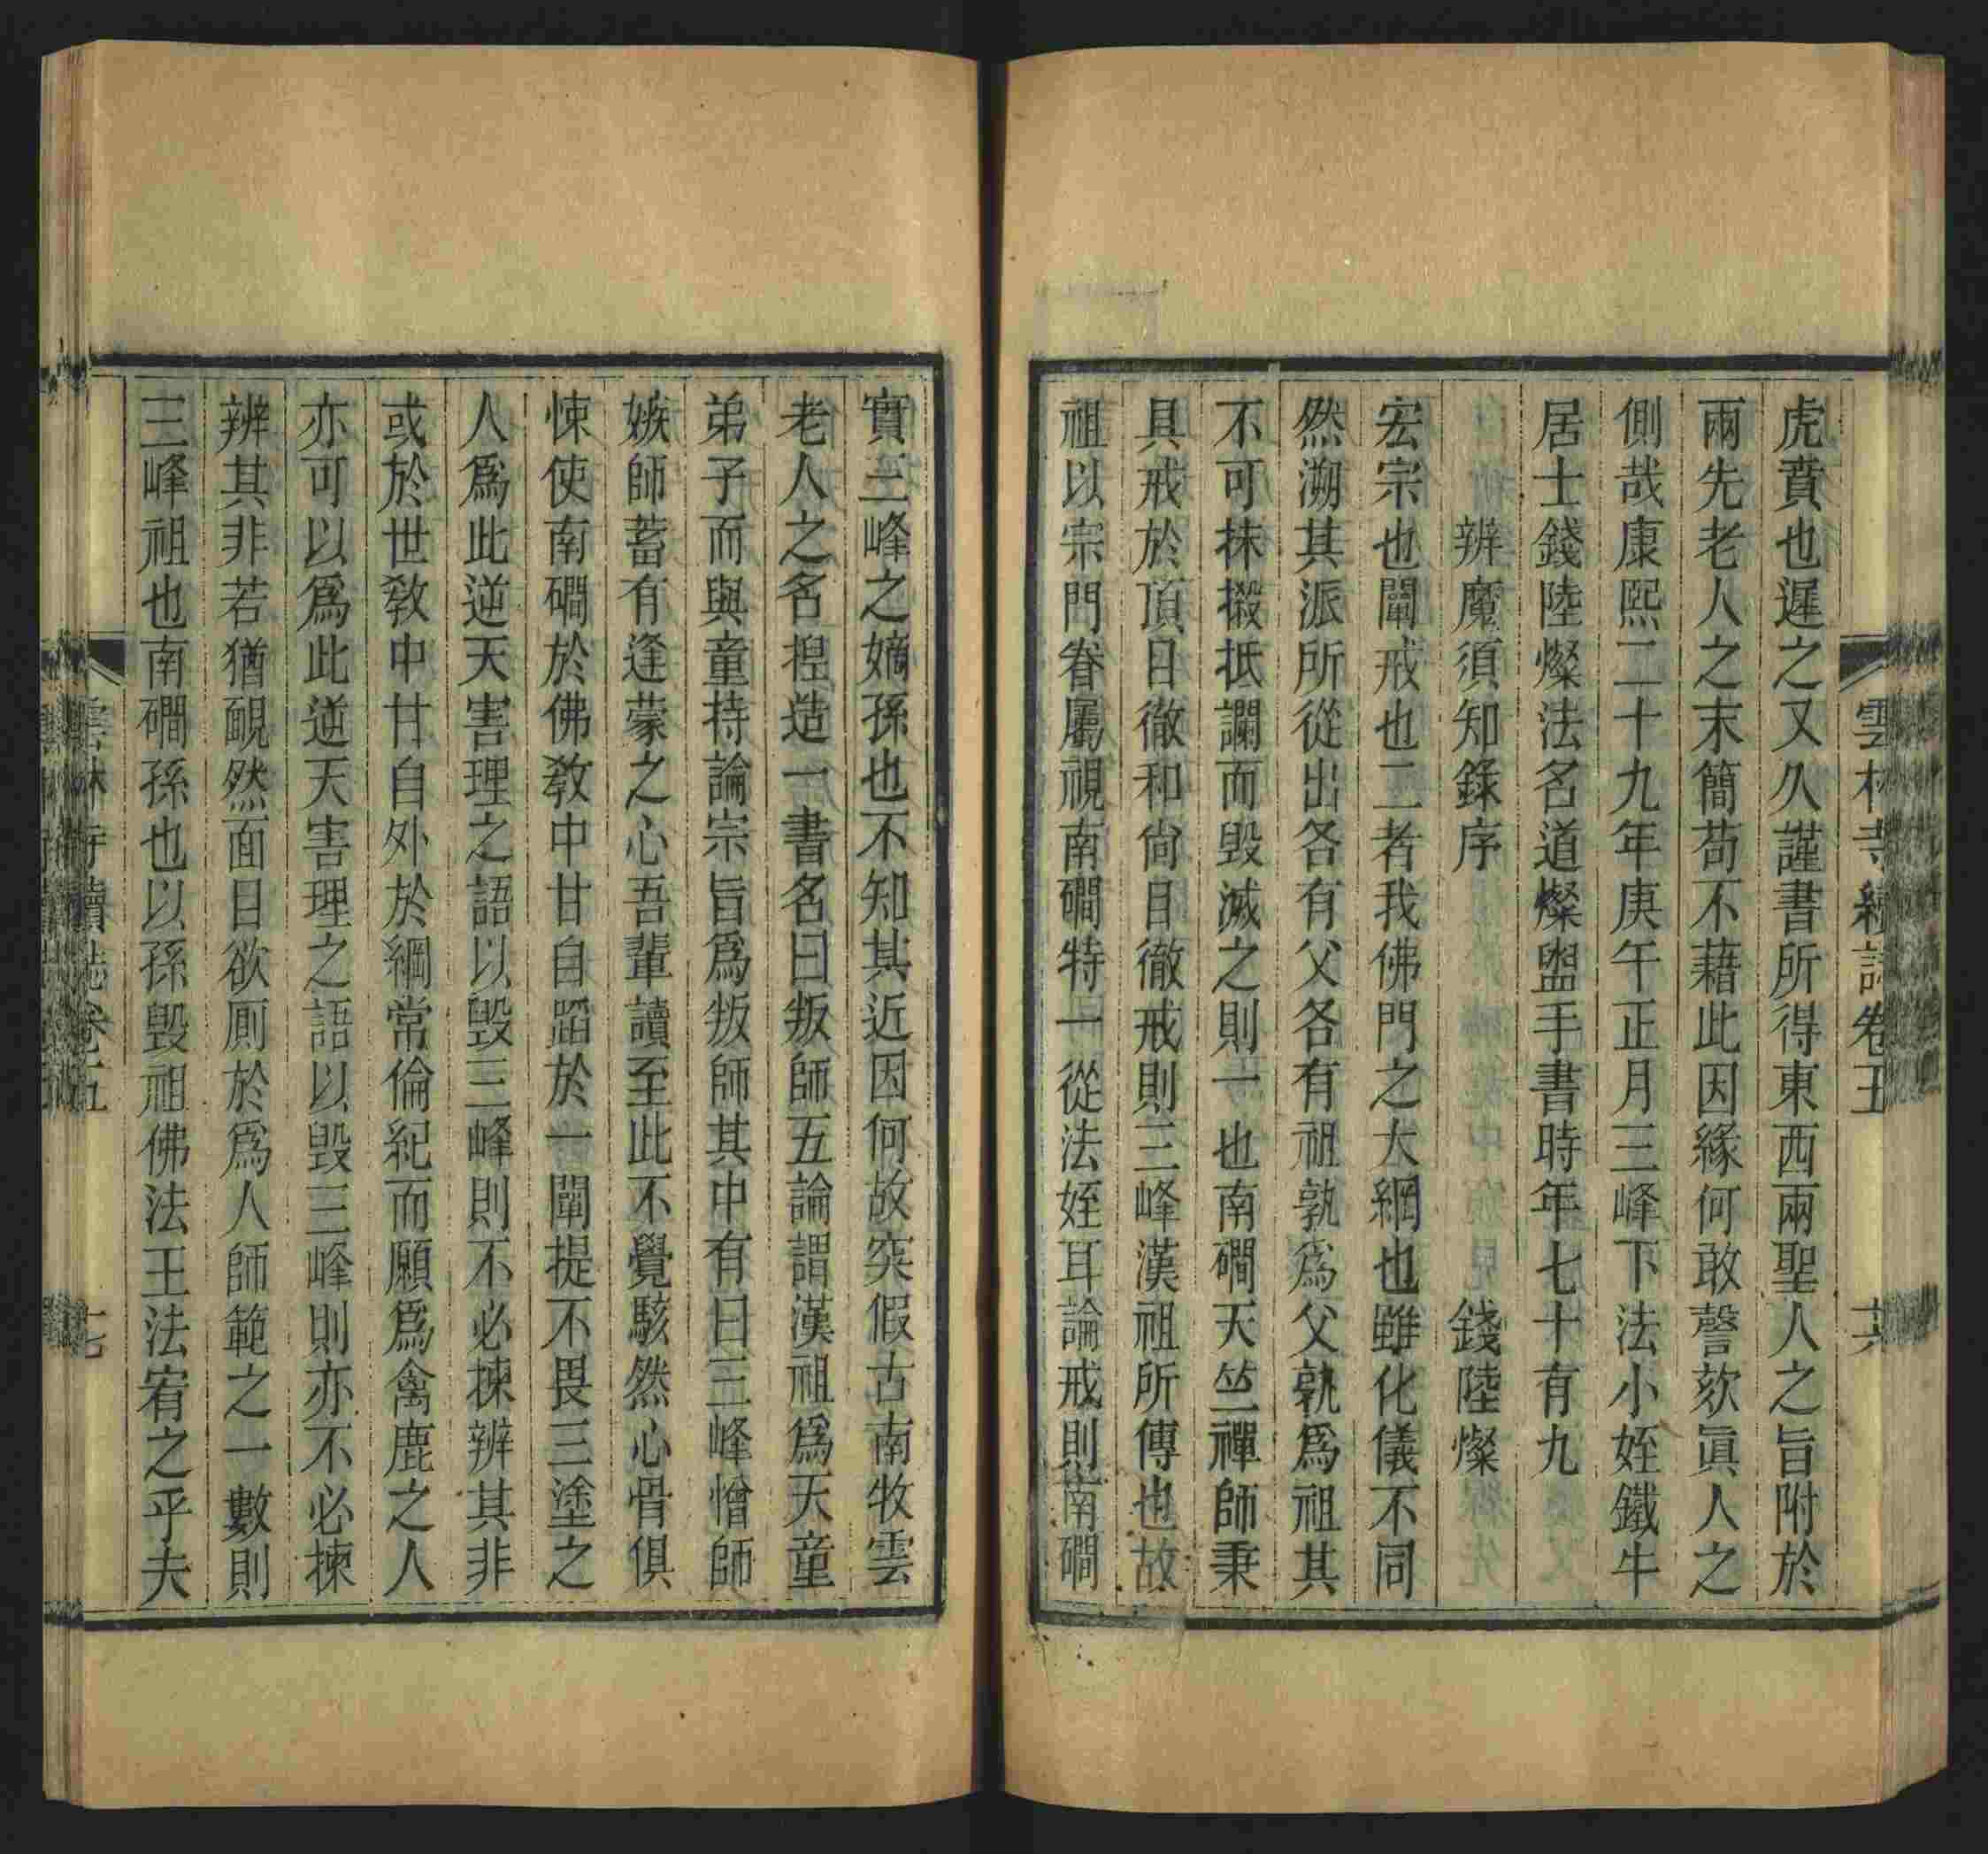 雲林寺續誌卷五
十六
虎賁也遲之又久謹書所得東西兩聖人之旨附於
兩先老人之末簡苟不藉此因緣何敢謦欬眞人之
側哉康熙二十九年庚午正月三峰下法小姪鐵牛
居士錢陸燦法名道燦盥手書時年七十有九
辨魔須知錄序　錢陸燦
宏宗也闡戒也二者我佛門之大綱也雖化儀不同
然溯其派所從出各有父各有祖孰爲父孰爲祖其
不可抹摋抵讕而毀滅之則一也南磵天竺禪師秉
具戒於頂目徹和尙目徹戒則三峰漢祖所傳也故
祖以宗門眷屬視南磵特一從法姪耳論戒則南磵
實三峰之嫡孫也不知其近因何故突假古南牧雲
老人之名揑造一書名曰叛師五論謂漢祖爲天童
弟子而與童持論宗旨爲叛師其中有曰三峰憎師
嫉師蓄有逢蒙之心吾輩讀至此不覺駭然心骨俱
悚使南磵於佛敎中甘自蹈於一闡提不畏三塗之
人爲此逆天害理之語以毀三峰則不必揀辨其非
或於世敎中甘自外於綱常倫紀而願爲禽鹿之人
亦可以爲此逆天害理之語以毀三峰則亦不必揀
辨其非若猶覥然面目欲厠於爲人師範之一數則
三峰祖也南磵孫也以孫毀祖佛法王法宥之乎夫
雲林寺續誌卷五
十七